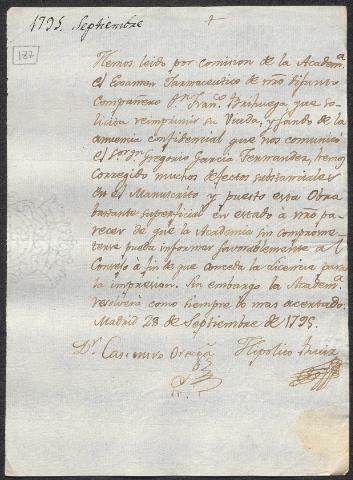 1795. Septiembre
187
Hemos leido por comision de la Academ.ª
el Examen Farmaceutico de nro difunto
Compañero Dn. Fran.co Brihuega, que so-
licita reimprimir su Viuda, y usando de la
anuencia confidencial que nos comunicó
el Sor. Dn. Gregorio Garcia Fernandez, hemos
Corregido muchos defectos substanciales
en el Manuscrito y puesto esta Obra
bastante superficial en estado a nro pa-
recer de que la Academia sin comprome-
terse pueda informar favorablemente al
Consejo á fin de que conceda la licencia para
la impresion. Sin embargo la Academ.ª
resolverá como siempre lo mas acertado.
Madrid 28 de Septiembre de 1795.
Dr. Casimiro Ortega Hipolito Ruiz